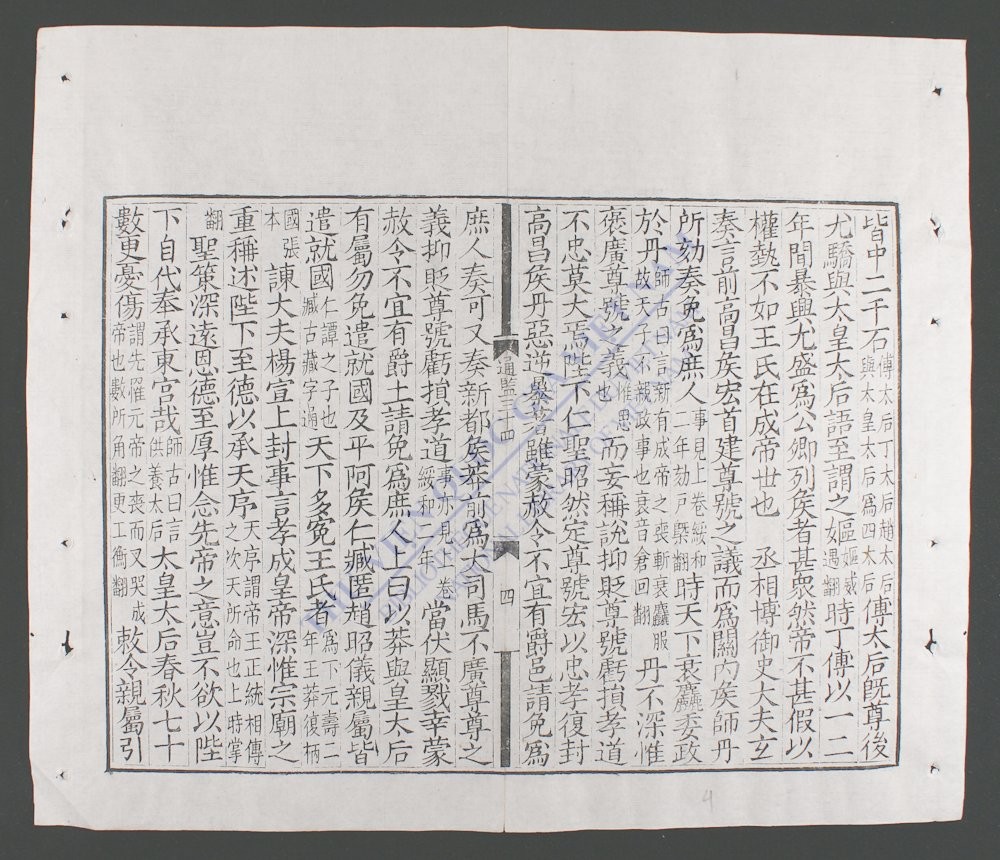 皆中二千石傅太后丁太后趙太后與太皇太后爲四太后傅太后旣尊後
尤驕與太皇太后語至謂之嫗嫗威遇翻時丁傅以一二
年間暴興尤盛爲公卿列矦者甚衆然帝不甚假以
權埶不如王氏在成帝世也 丞相博御史大夫玄
奏言前高昌矦宏首建尊號之議而爲關內矦師丹
所劾奏免爲庶人事見上卷綏和二年劾戸槩翻時天下衰麤委政
於丹師古曰言新有成帝之喪斬衰麤服故天子不親政事也衰音倉回翻丹不深惟
褒廣尊號之義惟思也而妄稱說抑貶尊號虧損孝道
不忠莫大焉陛下仁聖昭然定尊號宏以忠孝復封
高昌矦丹惡逆暴著雖蒙赦令不宜有爵邑請免爲
通監三十四 四
庶人奏可又奏新都矦莽前爲大司馬不廣尊尊之
義抑貶尊號虧損孝道事亦見上卷綏和二年當伏顯戮幸蒙
赦令不宜有爵土請免爲庶人上曰以莽與皇太后
有屬勿免遣就國及平阿矦仁臧匿趙昭儀親屬皆
遣就國仁譚之子也臧古藏字通天下多冤王氏者爲下元壽二年王莽復柄
國張本諫大夫楊宣上封事言孝成皇帝深惟宗廟之
重稱述陛下至德以承天序天序謂帝王正統相傳之次天所命也上時掌
翻聖策深遠恩德至厚惟念先帝之意豈不欲以陛
下自代奉承東宮哉師古曰言供養太后太皇太后春秋七十
數更憂傷謂先罹元帝之喪而又哭成帝也數所角翻更工衡翻敕令親屬引
HÁN NÔM
4